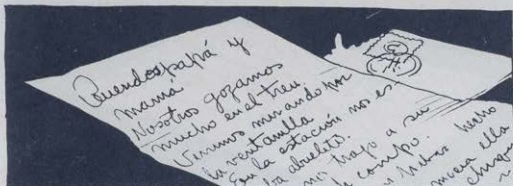 Queridos papá y
mamá
Nosotros gozamos
mucho en el tren
Venimos mirando por
la ventanilla
En la estación nos es
ba abuelito.
nos trajo a su
campo.
hecho
ella